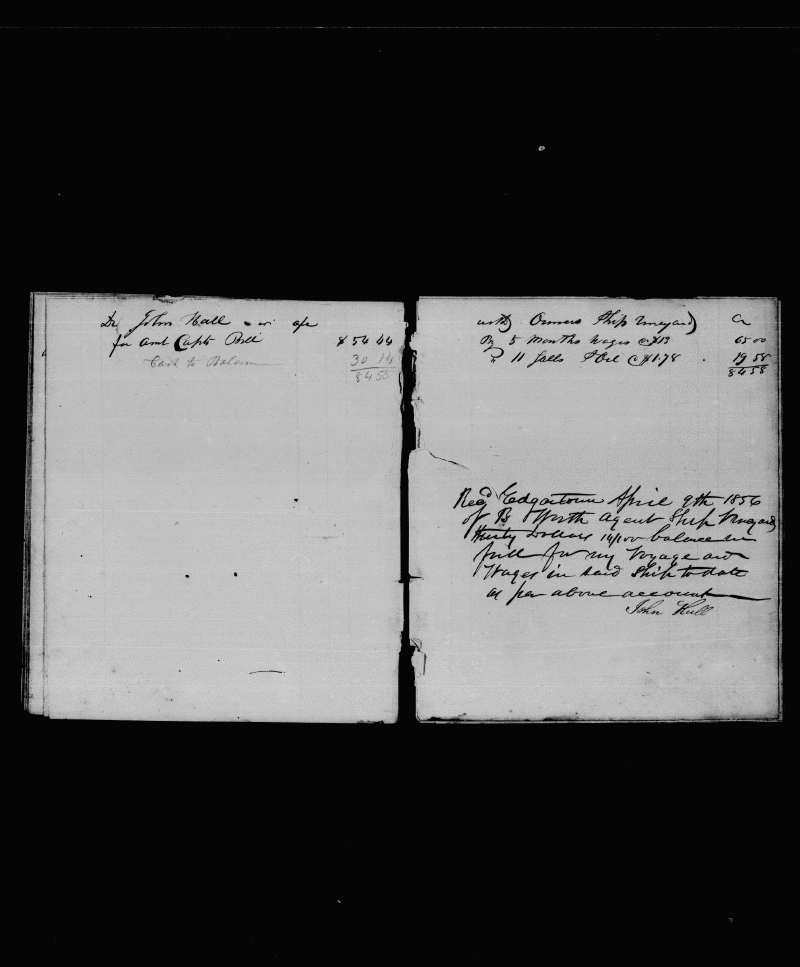 Dr John Hall in a/c
for amt Capts Bill $54 44
Cash to Balance 30 14
84 58
with Owners Ship Vineyard Cr
By 5 Months Wages @ $13 65 00
" 11 Galls Oil @ $1.78 19 58
84 58
Recd Edgartown April 9th 1856
of B Worth Agent Ship Vineyard
Thirty Dollars 14/100 balance in
full for my Voyage and
Wages in said Ship to date
as per above account
John Hull